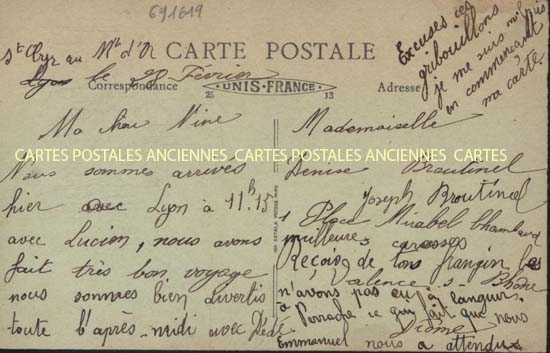 691619
St Cyr au Mt d'Or
CARTE POSTALE
Lyon le 28 Février
Correspondance
25 UNIS-FRANCE 13
Adresse
Excuses ces
gribouillons
je me suis mépris
en commençant
ma carte.
Ma chère Nine
Nous sommes arrivés
hier avec Lyon à 11h 15
avec Lucien, nous avons
fait très bon voyage
nous sommes bien divertis
toute l'après-midi avec Dédé.
Mademoiselle
Denise Broutinel
Joseph Broutinel
1 Place Mirabel Chambaud
meilleures caresses
Reçois de tons frangin les
Valence s. Rhône
n'avons pas eu
langueur
à Perrache ce qui fait que nous
Drôme
Emmanuel nous a attendus
CARTES POSTALES ANCIENNES CARTES POSTALES ANCIENNES CARTES